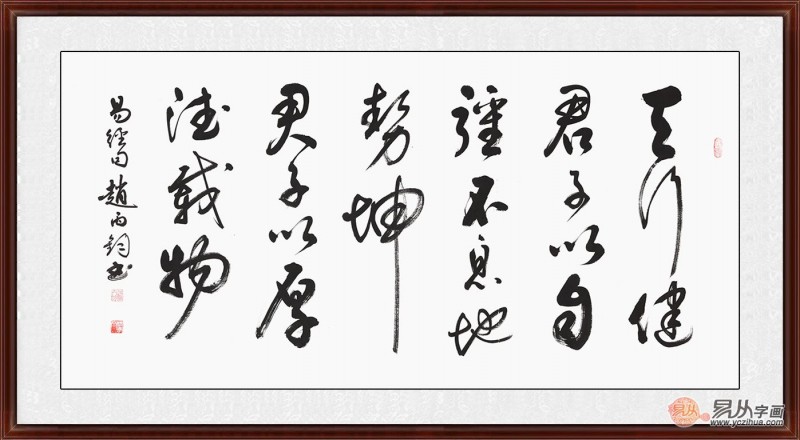 天行健
君子以自
强不息地
势坤
君子以厚
德载物
易经句 赵雨钧书
易从字画
www.yczihua.com